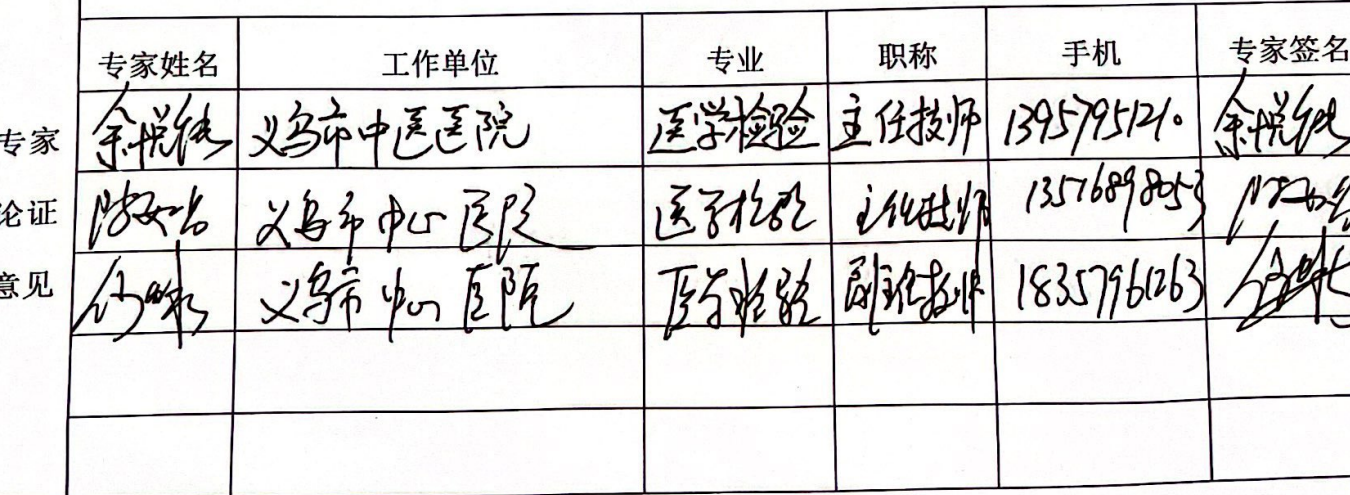 专家姓名 工作单位 专业 职称 手机 专家签名
专家 义乌市中医医院 医学检验 主任技师 13957951210
论证 义乌市中心医院 医学检验 主任技师 13516898053
意见 义乌市中心医院 医学检验 副主任技师 18357961263